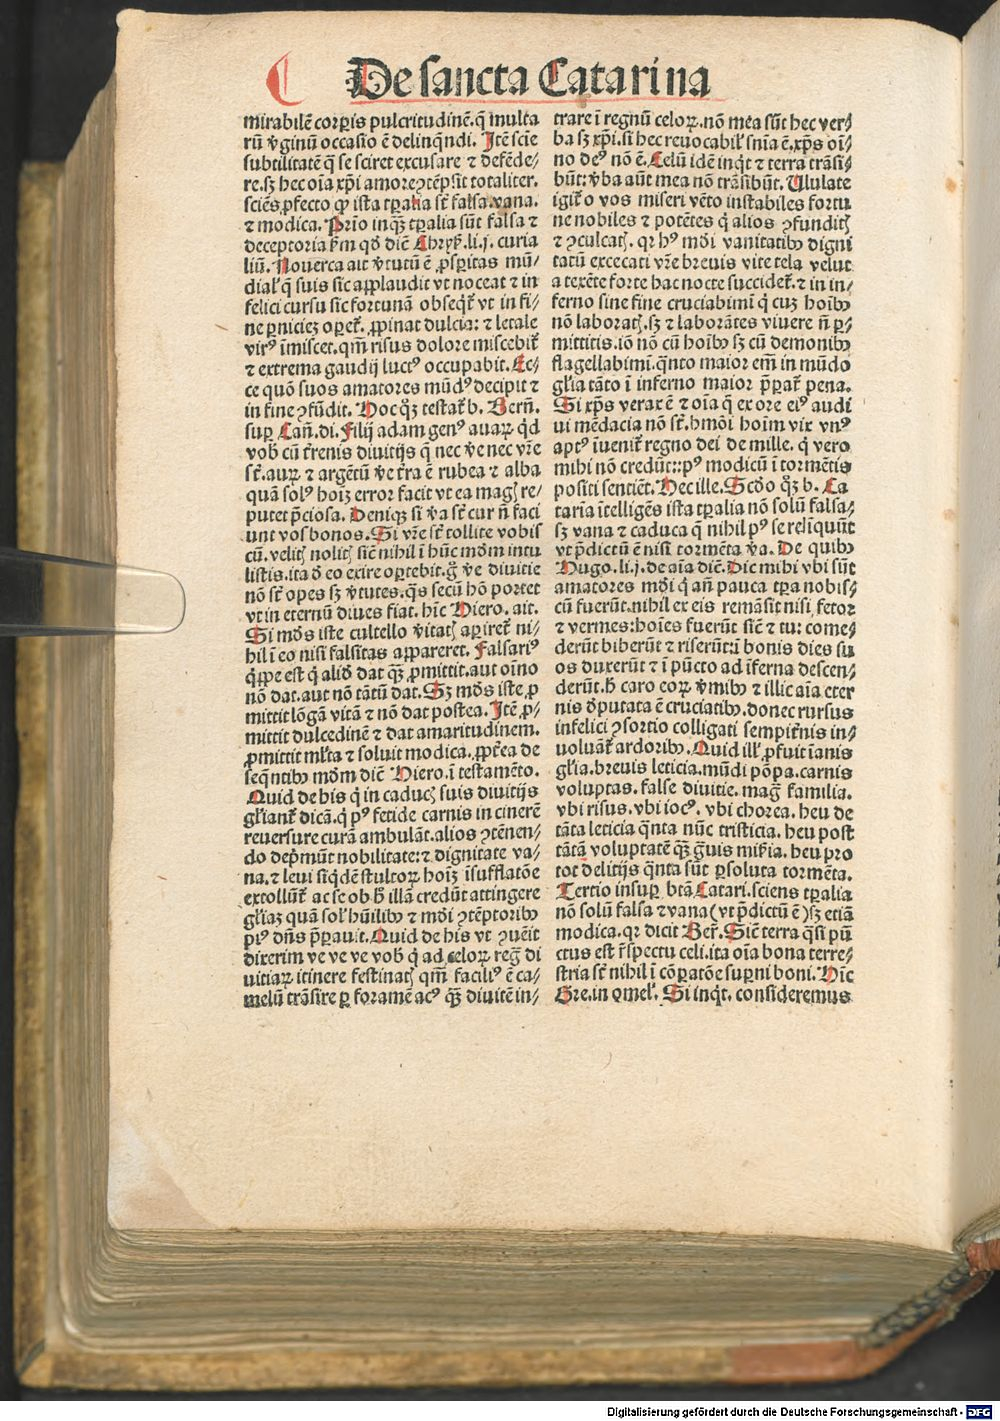 De sancta Catarina
mirabilē corꝑis pulcritudinē. q̄ multa
rū v̄ginū occasio ē delinq̄ndi. Itē scīe
subtilitatē q̄ se sciret excusare ⁊ defēde⸗
re. sꝫ hec oīa xp̄i amore ꝯtēpsit totaliter.
sciēs ꝓfecto ꝙ ista tꝑalia st̄ falsa. vana.
⁊ modica. Prīo inqꝫ tꝑalia sūt falsa ⁊
deceptoria ẜm qd̄ diē Chryẜ. li. j. curia
liū. Nouerca ait v̄tutū ē ꝓsꝑitas mū⸗
dial' q̄ suis sic applaudit vt noceat ⁊ in
felici cursu sic fortunā obseqt̄ vt in fi⸗
ne ꝑniciez oꝑet̄. ꝓpinat dulcia: ⁊ letale
virꝰ īmiscet. qm̄ risus dolore miscebit̄
⁊ extrema gaudij luctꝰ occupabit. Ec⸗
ce quō suos amatores mūdꝰ decipit ⁊
in fine ꝯfūdit. Hoc qꝫ testat̄ b. Bern̄.
suꝑ Can̄. di. Filij adam genꝰ auaꝝ qd
vob̄ cū t̄renis diuitijs q̄ nec v̄e nec vr̄e
st̄. auꝝ ⁊ argētū v̄e t̄ra ē rubea ⁊ alba
quā solꝰ hoīꝫ error facit vt ea magꝭ re⸗
putet p̄ciosa. Denique si v̄a st̄ cur n̄ faci
unt vos bonos. Si vr̄e st̄ tollite vobis
cū. velitꝭ nolitꝭ siē nihil ī hūc mōm intu
listis. ita d̄ eo exire oꝑtebit. g̊ ve diuitie
nō st̄ opes sꝫ v̄tutes. qs̄ secū hō portet
vt in eternū diues fiat. hīc Hiero. ait.
Si mōs iste cultello v̄itatꝭ aꝑiret̄ ni⸗
hil ī eo nisi falsitas appareret. Falsariꝰ
q̄ppe est q̄ aliō dat qꝫ ꝓmittit. aut oīno
nō dat. aut nō tātū dat. Sꝫ mōs iste ꝓ
mittit lōgā vitā ⁊ nō dat postea. Itē ꝓ⸗
mittit dulcedinē ⁊ dat amaritudinem.
ꝓmittit ml̄ta ⁊ soluit modica. ꝓpt̄ea de
seq̄ntibꝰ mōm diē Hiero. ī testamēto.
Quid de his q̄ in caducꝭ suis diuitijs
gl̄iant̄ dicā. q̄ pꝰ fetide carnis in cinerē
reuersure curā ambulāt. alios ꝯtēnen⸗
do dep̄mūt nobilitate: ⁊ dignitate va⸗
na. ⁊ leui siq̄dē stultoꝝ hoīꝫ īsufflatōe
extollūt̄ ac se ob ħ illā credūt attingere
gl̄iaꝫ quā sol' hūilibꝰ ⁊ mōi ꝯtēptoribꝰ
piꝰ dn̄s p̄ꝑauit. Quid de his vt ꝯuēit
dixerim ve ve ve vob̄ q̄ ad celoꝝ reg̊ di
uitiaꝝ itinere festinatꝭ qm̄ faciliꝰ ē ca⸗
melū trāsire ꝑ foramē acꝰ qꝫ diuitē in⸗
trare ī regnū celoꝝ. nō mea sūt hec ver⸗
ba sꝫ xp̄i. si hec reuocabil' snīa ē. xp̄s oī⸗
no deꝰ nō ē. Celū idē inq̇t ⁊ terra trāsi⸗
būt: v̄ba aūt mea nō trāsibūt. Ululate
igit̄ o vos miseri vēto instabiles fortu
ne nobiles ⁊ potētes q̄ alios ꝯfunditꝭ
⁊ ꝯculcatꝭ. qꝛ hꝰ mōi vanitatibꝰ digni
tatū excecati vr̄e breuis vite tela velut
a texēte forte hac nocte succidet̄. ⁊ in in⸗
ferno sine fine cruciabimī q̄ cuꝫ hoībꝰ
nō laboratꝭ. sꝫ ⁊ laborātes viuere n̄ ꝑ⸗
mittitis. iō nō cū hoībꝰ sꝫ cū demonibꝰ
flagellabimī. q̄nto maior em̄ in mūdo
gl̄ia tāto ī inferno maior p̄ꝑat̄ pena.
Si xp̄s verax ē ⁊ oīa q̄ ex ore eiꝰ audi
ui mēdacia nō st̄. hmōi hoīm vix vnꝰ
aptꝰ īuenit̄ regno dei de mille. q̄ vero
mihi nō credūt:: pꝰ modicū ī tormētis
positi sentiēt. Hec ille. Scd̄o qꝫ b. Ca
taria ītelligēs ista tꝑalia nō solū falsa⸗
sꝫ vana ⁊ caduca q̄ nihil pꝰ se relīquūt
vt p̄dictū ē nisi tormēta v̄a. De quibꝰ
Hugo. li. j. de aīa diē. Dic mihi vbi sūt
amatores mōi q̄ an̄ pauca tꝑa nobis⸗
cū fuerūt. nihil ex eis remāsit nisi fetor
⁊ vermes: hoīes fuerūt siē ⁊ tu: come⸗
derūt biberūt ⁊ riserūt: ī bonis dies su
os duxerūt ⁊ ī pūcto ad īferna descen⸗
derūt. ħ caro coꝝ v̄mibꝰ ⁊ illic aīa eter
nis d̄putata ē cruciatibꝰ. donec rursus
infelici ꝯsortio colligati sempit̄nis in⸗
uoluāt̄ ardoribꝰ. Quid ill' ꝓfuit īanis
gl̄ia. breuis leticia. mūdi pōpa. carnis
voluptas. false diuitie. mag̊ familia.
vbi risus. vbi iocꝰ. vbi chorea. heu de
tāta leticia q̄nta nūc tristicia. heu post
tātā voluptatē qꝫ g̊uis mis̄ia. heu pro
tot delitijs q̄nta sūt ꝑsoluta tormēta.
Tertio insuꝑ btā Catari. sciens tꝑalia
nō solū falsa ⁊ vana (vt p̄dictū ē) sꝫ etiā
modica. qꝛ dicit Ber̄. Siē terra q̄si pū
ctus est r̄spectu celi. ita oīa bona terre⸗
stria st̄ nihil ī cōꝑatōe suꝑni boni. Hīc
Gre. in omel'. Si inq̇t. consideremus
Digitalisierung gefördert durch die Deutsche Forschungsgemeinschaft - DFG